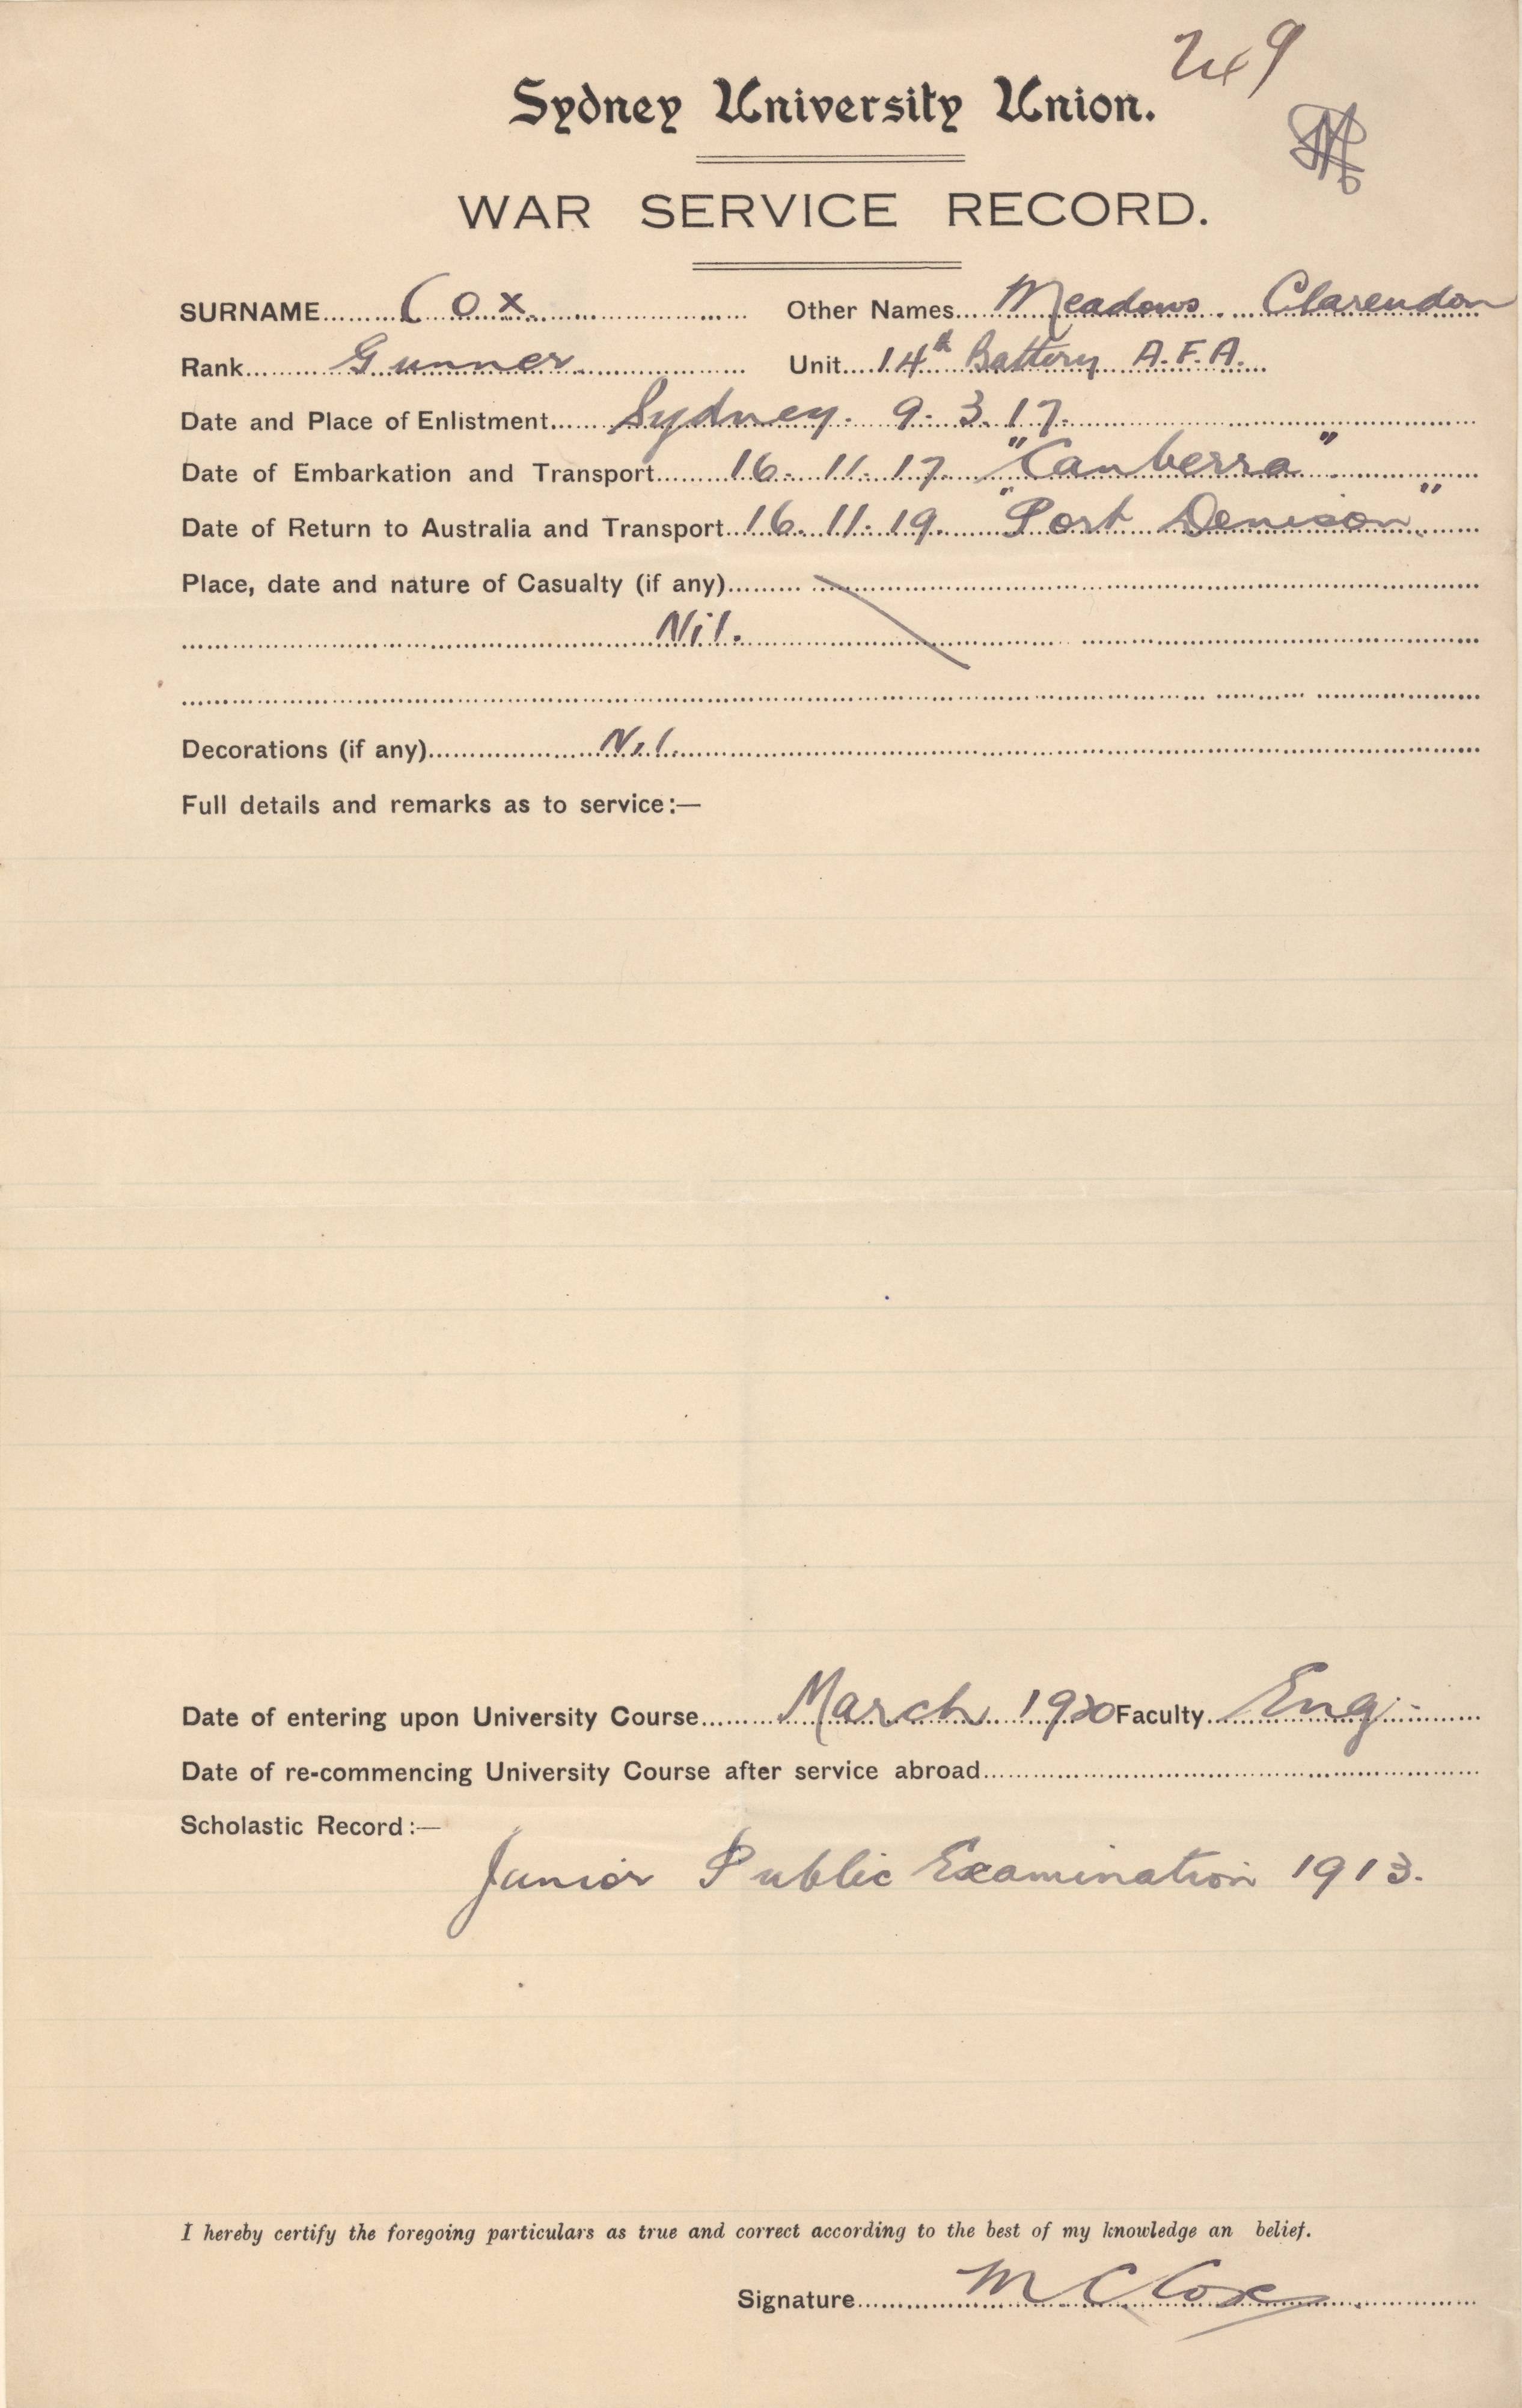 249
Sydney University Union.
WAR SERVICE RECORD.
SURNAME Cox. Other Names Meadows Clarendon
Rank Gunner. Unit 14th Battery A.F.A.
Date and Place of Enlistment Sydney. 9.3.17.
Date of Embarkation and Transport 16.11.17. "Canberra"
Date of Return to Australia and Transport 16.11.19. "Port Denison"
Place, date and nature of Casualty (if any)
Nil.
Decorations (if any) Nil.
Full details and remarks as to service:—
Date of entering upon University Course March 1920 Faculty Eng.
Date of re-commencing University Course after service abroad
Scholastic Record:—
Junior Public Examination 1913.
I hereby certify the foregoing particulars as true and correct according to the best of my knowledge an belief.
Signature M C Cox